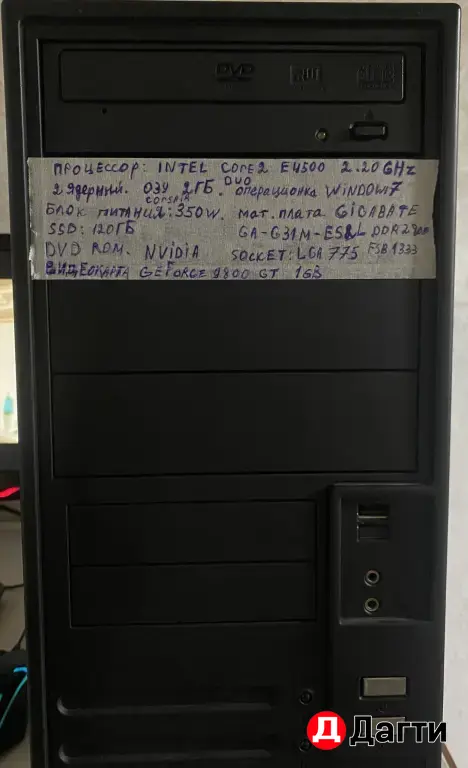 DVD
ПРОЦЕССОР: INTEL CORE2 E4500 2.20GHz
DUO
2 ядерный. ОЗУ 2ГБ. операционка WINDOW7
CORSAIR
БЛОК ПИТАНИЯ: 350W. МАТ. ПЛАТА GIGABATE
SSD: 120ГБ GA-G31M-ES2L DDR2 800
DVD ROM. NVIDIA SOCKET: LGA 775 FSB 1333
ВИДЕОКАРТА GEFORCE 9800 GT 1GB
Д Дагти